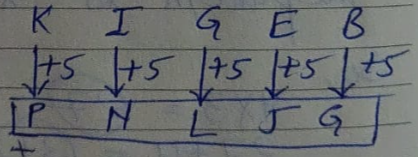 K I G E B
+5 +5 +5 +5 +5
P N L J G
+